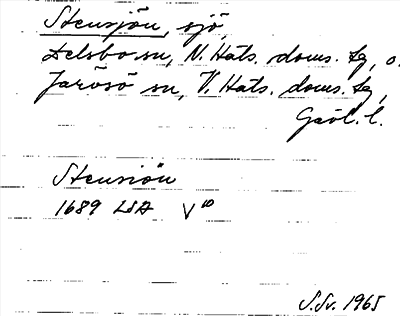 Stensjön, sjö,
Delsbo sn, N. Häls. doms. tg, o.
Järvsö sn, V. Häls. doms. tg,
Gävl. l.
Stensiön
1689 LSA V¹⁰
S.Sv. 1965